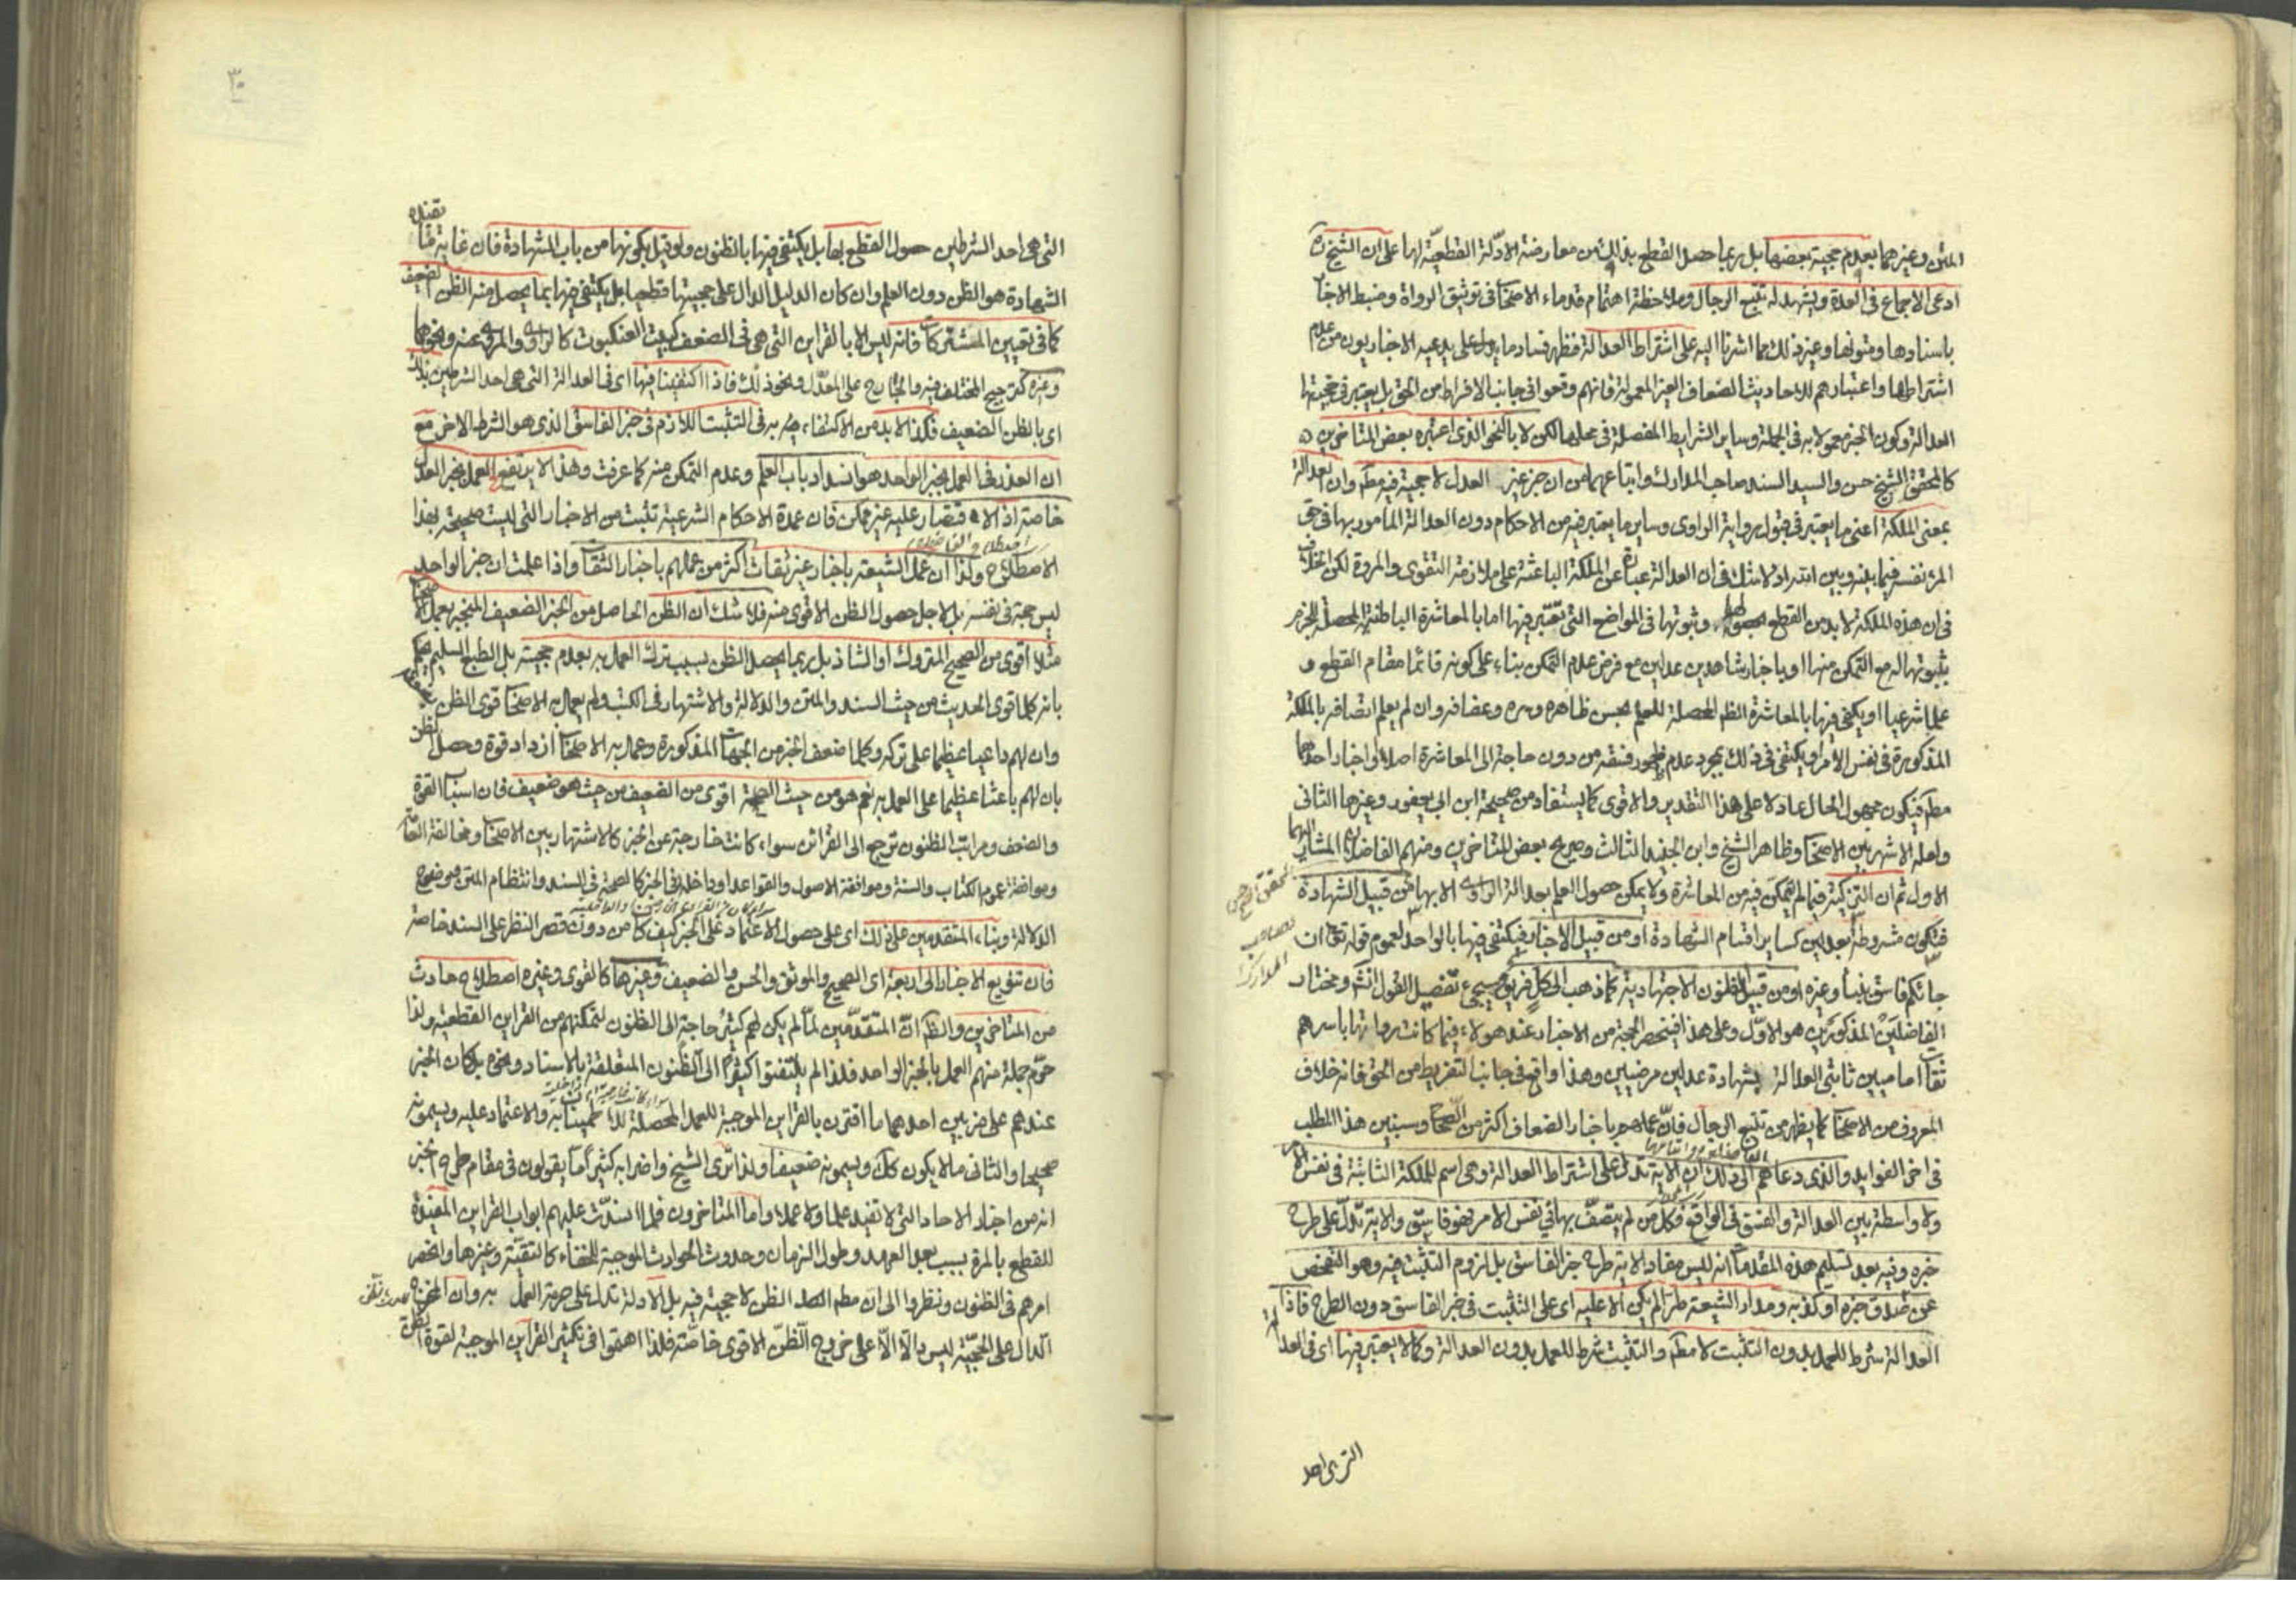 المتن وغيرهما بعدم حجية بعضها بل ربما حصل القطع بذلك من معارضة الادلّة القطعيّة لها على ان الشيخ ره
ادعى الاجماع في العدة ويشهد له تتبع الرجال وملاحظة اهتمام قدماء الاصحاب في توثيق الرواة وضبط الاخبار
باسنادها ومتونها وغير ذلك مما اشرنا اليه على اشتراط العدالة فظهر فساد ما يدعيه الاخباريون من عدم
اشتراطها واعتبارهم للاحاديث الضعاف الغير المعمولة فانهم وقعوا في جانب الافراط من الحق بل يعتبر في حجيتها
العدالة وكون الخبر معمولا به في الجملة وساير الشرايط المفصلة في محلها لكن لا بالنحو الذي اعتبره بعض المتاخرين
كالمحقق الشيخ حسن والسيد السند صاحب المدارك واتباعهما من ان خبر غير العدل لا حجية فيه مطم وان العدالة
بمعنى الملكة اعنى ما يعتبر في قبول رواية الراوي وساير ما يعتبر فيه من الاحكام دون العدالة المامور بها في حق
المرء نفسه فيما بينه وبين الله لا شك في ان العدالة عبارة عن الملكة الباعثة على ملازمة التقوى والمروة لكن الخلاف
في ان هذه الملكة لا بد من القطع بحصولها وثبوتها في المواضع التي تعتبر فيها اما بالمعاشرة الباطنة المحصلة للجزم
بثبوتها له مع التمكن منها او باخبار شاهدين عدلين مع فرض عدم التمكن بناء على كونه قائما مقام القطع و
علما شرعيا او يكفي فيها بالمعاشرة الظم المحصلة للعلم بحسن ظاهره وستره وعفافه وان لم يعلم اتصافه بالملكة
المذكورة في نفس الامر او يكتفى في ذلك بمجرد عدم ظهور فسقه من دون حاجة الى المعاشرة اصلا او اخبار احدهما
مطم فيكون مجهول الحال عادلا على هذا التقدير والاقوى كما يستفاد من صحيحة ابن ابي يعفور وغيرها الثاني
ولعله الاشهر بين الاصحاب وظاهر الشيخ وابن الجنيد الثالث وصريح بعض المتاخرين ومنهم الفاضلان المشار اليهما
الاول ثم ان التزكية فيما لم يتمكن فيه من المعاشرة ولا يمكن حصول العلم بعدالة الراوي الا بها من قبيل الشهادة
فتكون مشروطة بعدلين كساير اقسام الشهادة او من قبيل الاخبار فيكتفى فيها بالواحد لعموم قوله تع ان
جائكم فاسق بنبأ وغيره او من قبيل الظنون الاجتهادية كما ذهب الى كل فريق وسيجيء تفصيل القول انشم ومختار
الفاضلين المذكورين هو الاوّل وعلى هذا فينحصر الحجية من الاخبار عند هولاء فيما كانت رواتها باسرهم
ثقات اماميين ثابتي العدالة بشهادة عدلين مرضيين وهذا واقع في جانب التفريط من الحق فانه خلاف
المعروف من الاصحاب كما يظهر من تتبع الرجال فانّ عملهم باخبار الضعاف اكثر من الصحاح وسنبين هذا المطلب
في اخر الفوايد والذي دعاهم الى ذلك ان الاية تدل على اشتراط العدالة وهي اسم للملكة الثابتة في نفس الامر
ولا واسطة بين العدالة والفسق في الواقع فكل من لم يتصف بها في نفس الامر فهو فاسق والاية تدلّ على طرح
خبره وفيه بعد تسليم هذه المقدمات انه ليس مفاد الاية طرح خبر الفاسق بل لزوم التثبت فيه وهو التفحص
عن صدق خبره او كذبه ومدار الشيعة طرا لم يكن الا عليه اى على التثبت في خبر الفاسق دون الطرح فاذا
العدالة شرط للعمل بدون التثبت لا مطم والتثبت شرط للعمل بدون العدالة وكما لا يعتبر فيها اى في العدالة
المحقق الشيخ حسن
وصاحب
المدارك
التي هي احد
٣٠
التي هي احد الشرطين حصول القطع بها بل يكتفي فيها بالظنون ولو قيل بكونها من باب الشهادة فان غاية ما تفيده
الشهادة هو الظن دون العلم وان كان الدليل الدال على حجيتها قطعيا بل يكتفي فيها بما يحصل منه الظن الضعيف
كما في تعيين المشتركات فانه ليس الا بالقراين التي هي في الضعف كبيت العنكبوت كالراوي والمروي عنه ونحوهما
وغيره كترجيح المختلف فيه والجارح على المعدّل ونحو ذلك فاذا اكتفينا فيها اى في العدالة التي هي احد الشرطين بذلك
اى بالظن الضعيف فكذا لا بد من الاكتفاء به في التثبت اللازم في خبر الفاسق الذي هو الشرط الاخر مع
ان العذر في العمل بخبر الواحد هو انسداد باب العلم وعدم التمكن منه كما عرفت وهذا لا يرتفع بالعمل بخبر العدل
خاصة اذ الاقتصار عليه غير ممكن فان عمدة الاحكام الشرعية تثبت من الاخبار التي ليست صحيحة بهذا
الاصطلاح ولذا ان عمل الشيعة باخبار غير ثقات اكثر من عملهم باخبار الثقات واذا علمت ان خبر الواحد
ليس حجة في نفسه بل لاجل حصول الظن الاقوى منه فلا شك ان الظن الحاصل من الخبر الضعيف المنجبر بعمل الاصحاب
مثلا اقوى من الصحيح المتروك او الشاذ بل ربما يحصل الظن بسبب ترك العمل به بعدم حجيته بل الطبع السليم يحكم
بانه كلما قوى الحديث من حيث السند والمتن والدلالة والاشتهار في الكتب ولم يعمل به الاصحاب قوى الظن بعدمه
وان لهم داعيا عظيما على تركه وكلما ضعف الخبر من الجهات المذكورة وعمل به الاصحاب ازداد قوة وحصل الظن
بان لهم باعثا عظيما على العمل به نعم هو من حيث الصحة اقوى من الضعيف من حيث هو ضعيف فان اسباب القوة
والضعف ومراتب الظنون ترجع الى القرائن سواء كانت خارجة عن الخبر كالاشتهار بين الاصحاب ومخالفة العامة
وموافقة عموم الكتاب والسنة وموافقة الاصول والقواعد او داخلة في الخبر كالصحة في السند وانتظام المتن ووضوح
الدلالة وبناء المتقدمين على ذلك اى على حصول الاعتماد على الخبر كيف كان من دون قصر النظر على السند خاصة
فان تنويع الاخبار الى اربعة اى الصحيح والموثق والحسن والضعيف وغيرها كالقوى وغيره اصطلاح حادث
من المتاخرين والظم انّ المتقدّمين لمّا لم يكن لهم كثير حاجة الى الظنون لتمكنهم من القراين القطعية ولذا
حرّم جملة منهم العمل بالخبر الواحد فلذا لم يلتفتوا كثيرا الى الظنون المتعلقة بالاسناد ونحوه بل كان الخبر
عندهم على ضربين احدهما ما اقترن بالقراين الموجبة للعمل المحصلة للاطمينان به والاعتماد عليه ويسمونه
صحيحا والثاني ما لا يكون كك ويسمونه ضعيفا ولذا ترى الشيخ واضرابه كثيرا ما يقولون في مقام طرح الخبر
انه من اخبار الاحاد التي لا تفيد علما ولا عملا واما المتاخرون فلما انسدّت عليهم ابواب القراين المفيدة
للقطع بالمرة بسبب بعد العهد وطول الزمان وحدوث الحوادث الموجبة للخفاء كالتقيّة وغيرها وانحصر
امرهم في الظنون ونظروا الى ان مطم الظن لا حجية فيه بل الادلة تدل على حرمة العمل به وان المخرج
الدال على الحجيّة ليس دالّا الّا على خروج الظنّ الاقوى خاصّة فلذا اهتموا في تكثير القراين الموجبة لقوة الظن